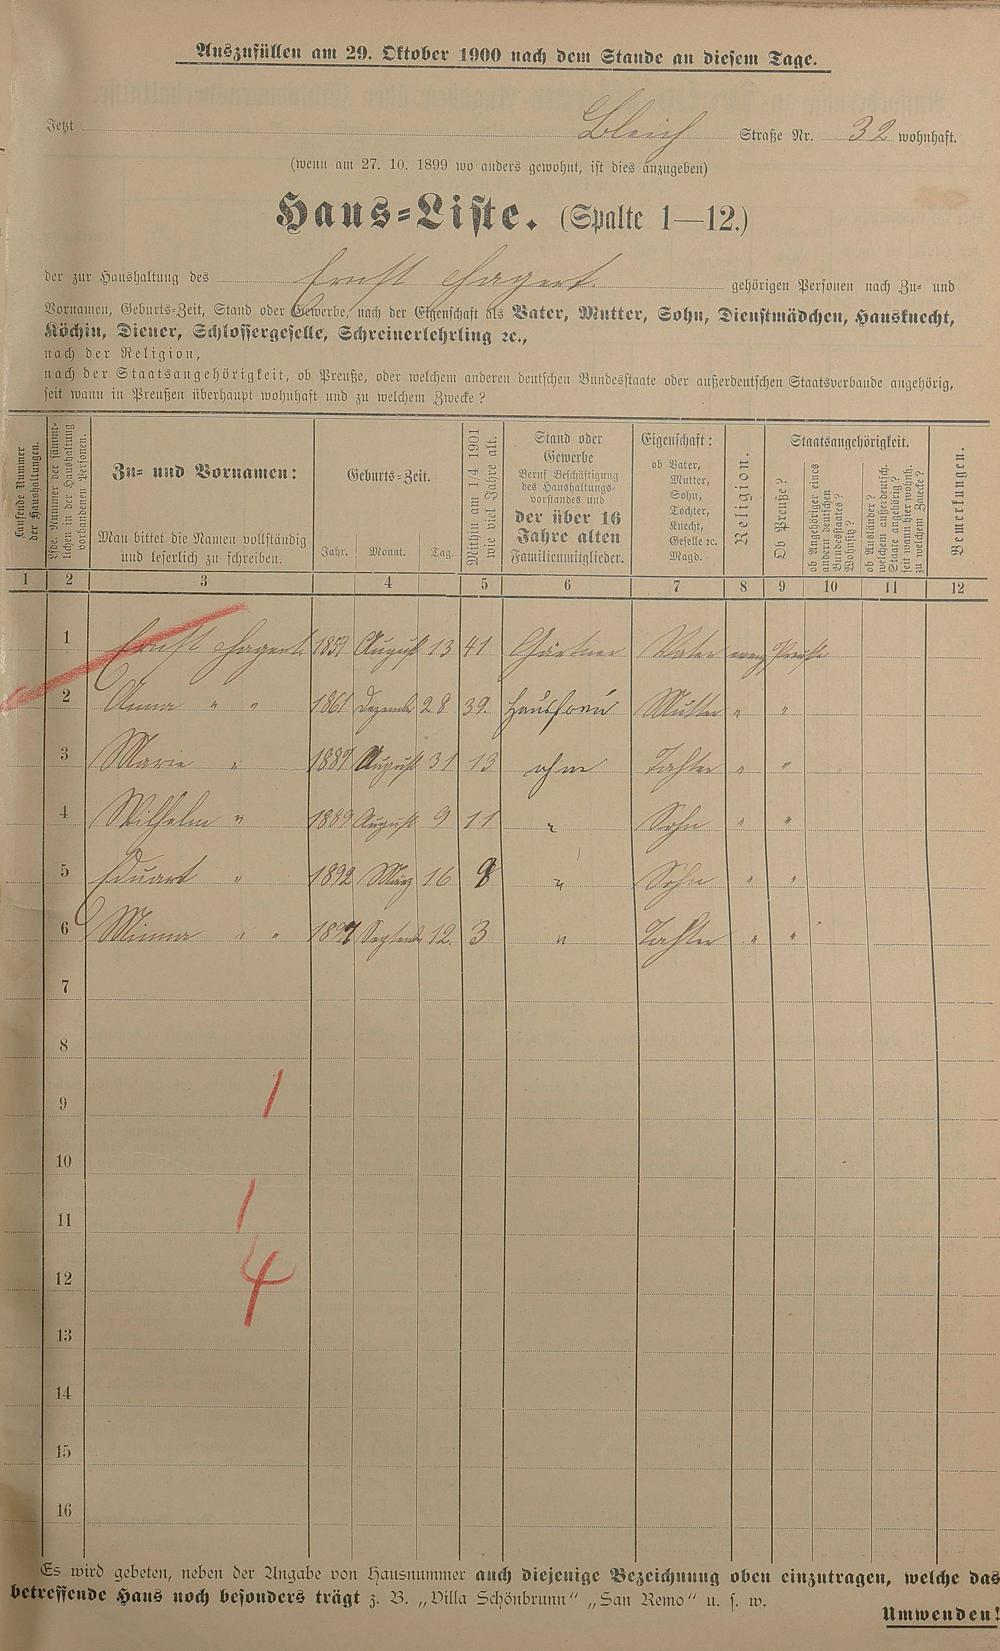 Auszufüllen am 29. Oktober 1900 nach dem Stande an diesem Tage.
Jetzt Bleich Straße Nr. 32 wohnhaft.
(wenn am 27. 10. 1899 wo anders gewohnt, ist dies anzugeben)
Haus=Liste. (Spalte 1—12.)
der zur Haushaltung des Ernst Hagert. gehörigen Personen nach Zu= und
Vornamen, Geburts=Zeit, Stand oder Gewerbe, nach der Eigenschaft als Vater, Mutter, Sohn, Dienstmädchen, Hausknecht,
Köchin, Diener, Schlossergeselle, Schreinerlehrling ꝛc.,
nach der Religion,
nach der Staatsangehörigkeit, ob Preuße, oder welchem anderen deutschen Bundesstaate oder außerdeutschen Staatsverbande angehörig,
seit wann in Preußen überhaupt wohnhaft und zu welchem Zwecke?
Laufende Nummer
der Haushaltungen.
Lfde. Nummer der sämmt=
lichen in der Haushaltung
vorhandenen Personen.
Zu= und Vornamen:
Man bittet die Namen vollständig
und leserlich zu schreiben.
Geburts=Zeit.
Jahr. Monat. Tag.
Mithin am 1/4 1901
wie viel Jahre alt.
Stand oder
Gewerbe
Beruf Beschäftigung
des Haushaltungs=
vorstandes und
der über 16
Jahre alten
Familienmitglieder.
Eigenschaft:
ob Vater,
Mutter,
Sohn,
Tochter,
Knecht,
Geselle ꝛc.
Magd.
Religion.
Staatsangehörigkeit.
Ob Preuße?
ob Angehöriger eines
andern deutschen
Bundesstaates?
Wohnsitz?
ob Ausländer?
welchem außerdeutsch.
Staate angehörig?
seit wann hier wohnh.
zu welchem Zwecke?
Bemerkungen.
1 2 3 4 5 6 7 8 9 10 11 12
1 Ernst Hagert. 1859 August 13 41 Gärtner Vater evang Preuße
2 Anna " " 1861 Dezember 28 39. Hausfrau Mutter " "
3 Marie " 1887 August 31 13 ohne Tochter " "
4 Wilhelm " 1889 August 9 11 " Sohn " "
5 Eduart " 1892 März 16 8 " Sohn " "
6 Minna " " 1897 September 12. 3 " Tochter " "
7
8
9 1
10
11 1
12 4
13
14
15
16
Es wird gebeten, neben der Angabe von Hausnummer auch diejenige Bezeichnung oben einzutragen, welche das
betreffende Haus noch besonders trägt z. B. „Villa Schönbrunn“ „San Remo“ u. s. w.
Umwenden!